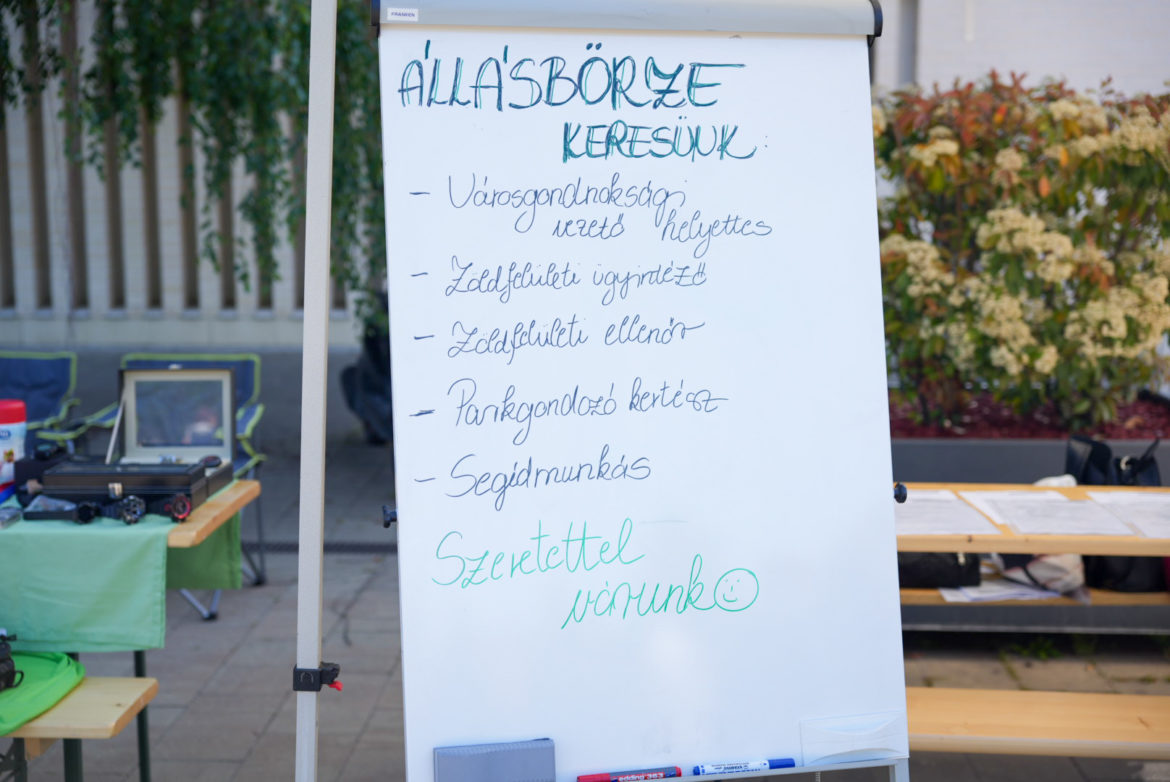 FRANKEN
ÁLLÁSBÖRZE
KERESÜNK:
- Városgondnoksági
vezető helyettes
- Zöldfelületi ügyintéző
- Zöldfelületi ellenőr
- Parkgondozó kertész
- Segédmunkás
Szeretettel
várunk ☺
edding 363